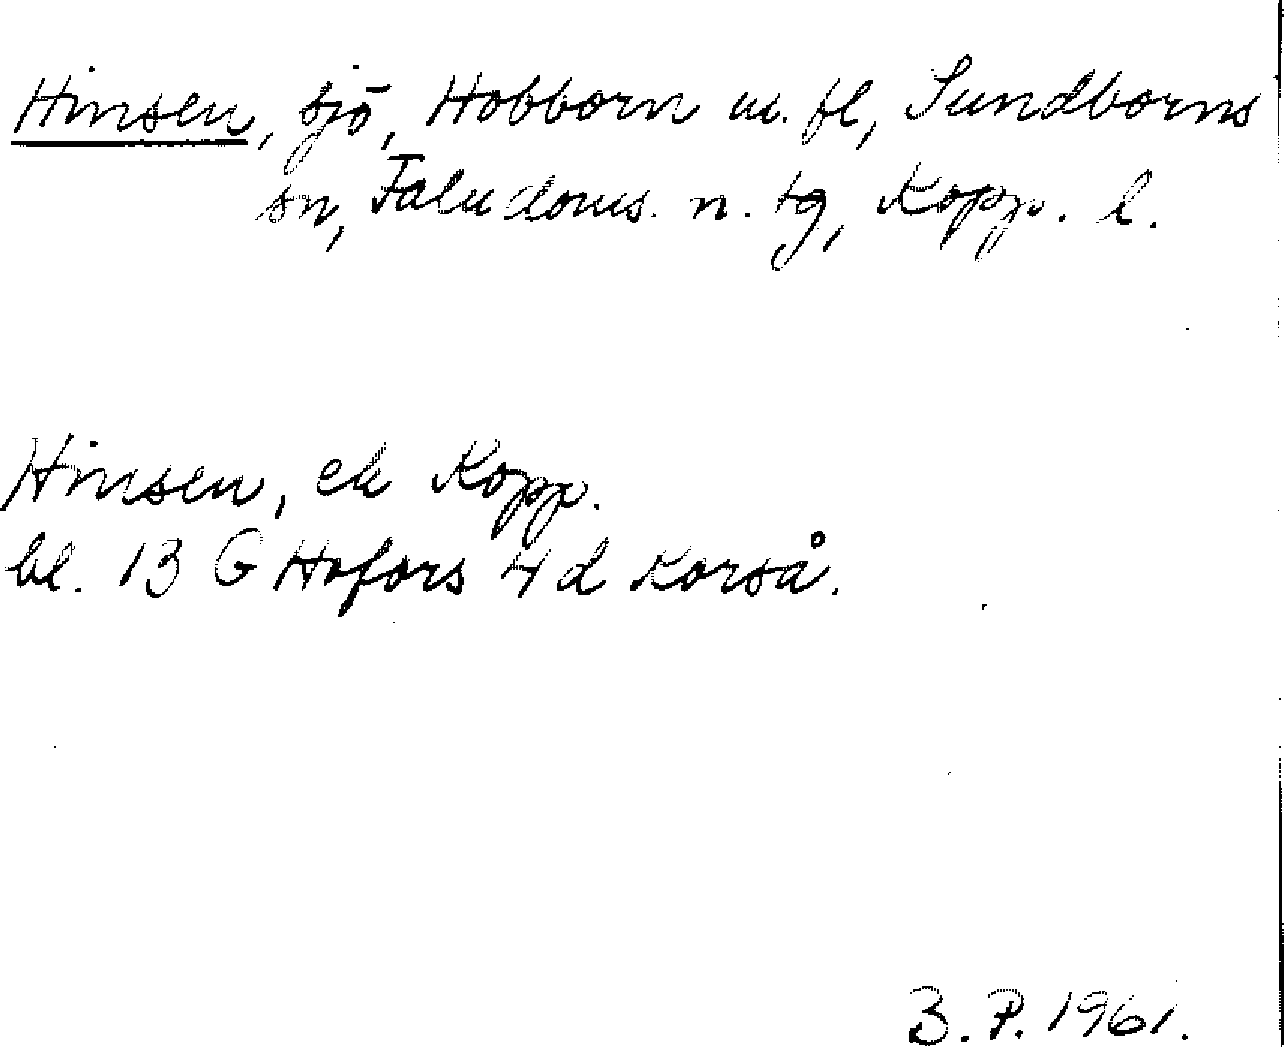 Hinsen, sjö, Hobborn m. fl, Sundborns
sn, Falu doms. n. tg, Kopp. l.
Hinsen, ek Kopp.
bl. 13 G Hofors 4 d Korså.
B. P. 1961.